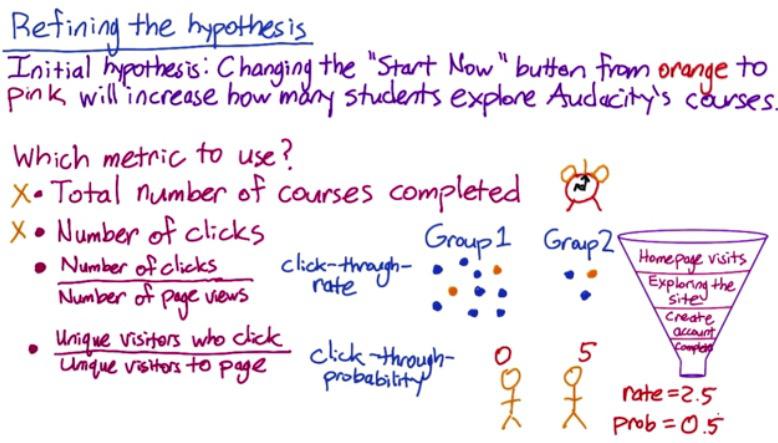 Refining the hypothesis
Initial hypothesis: Changing the "Start Now" button from orange to
pink will increase how many students explore Audacity's courses.
Which metric to use?
X • Total number of courses completed
X • Number of clicks
• Number of clicks
Number of page views
click-through-
rate
• Unique visitors who click
Unique visitors to page
click-through-
probability
Group 1
Group 2
0
5
Homepage visits
Exploring the
site
Create
account
Complete
rate = 2.5
prob = 0.5